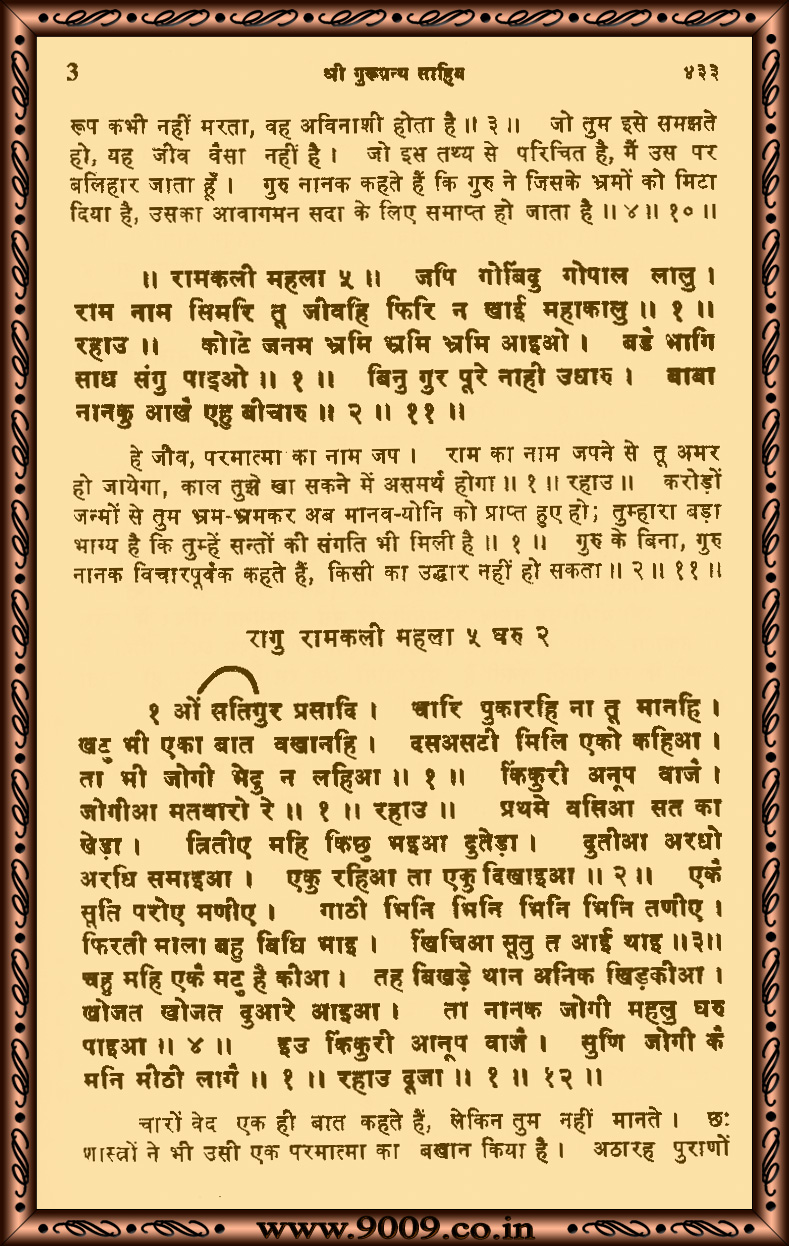 3 श्री गुरूग्रन्थ साहिब ४३३
रूप कभी नहीं मरता, वह अविनाशी होता है ॥ ३ ॥ जो तुम इसे समझते
हो, यह जीव वैसा नहीं है । जो इस तथ्य से परिचित है, मैं उस पर
बलिहार जाता हूँ । गुरु नानक कहते हैं कि गुरु ने जिसके भ्रमों को मिटा
दिया है, उसका आवागमन सदा के लिए समाप्त हो जाता है ॥ ४ ॥ १० ॥
॥ रामकली महला ५ ॥ जपि गोबिंदु गोपाल लालु ।
राम नाम सिमरि तू जीवहि फिरि न खाई महाकालु ॥ १ ॥
रहाउ ॥ कोटि जनम भ्रमि भ्रमि भ्रमि आइओ । बडै भागि
साध संगु पाइओ ॥ १ ॥ बिनु गुर पूरे नाही उधारु । बाबा
नानकु आखै एहु बीचारु ॥ २ ॥ ११ ॥
हे जीव, परमात्मा का नाम जप । राम का नाम जपने से तू अमर
हो जायेगा, काल तुझे खा सकने में असमर्थ होगा ॥ १ ॥ रहाउ ॥ करोड़ों
जन्मों से तुम भ्रम-भ्रमकर अब मानव-योनि को प्राप्त हुए हो; तुम्हारा बड़ा
भाग्य है कि तुम्हें सन्तों की संगति भी मिली है ॥ १ ॥ गुरु के बिना, गुरु
नानक विचारपूर्वक कहते हैं, किसी का उद्धार नहीं हो सकता ॥ २ ॥ ११ ॥
रागु रामकली महला ५ घरु २
१ ओं सतिगुर प्रसादि । चारि पुकारहि ना तू मानहि ।
खटु भी एका बात वखानहि । दसअसटी मिलि एको कहिआ ।
ता भी जोगी भेदु न लहिआ ॥ १ ॥ किंकुरी अनूप वाजै ।
जोगीआ मतवारो रे ॥ १ ॥ रहाउ ॥ प्रथमे वसिआ सत का
खेड़ा । त्रितीए महि किछु भइआ दुतेड़ा । दुतीआ अरधो
अरधि समाइआ । एकु रहिआ ता एकु दिखाइआ ॥ २ ॥ एकै
सूति परोए मणीए । गाठी भिनि भिनि भिनि भिनि तणीए ।
फिरती माला बहु बिधि भाइ । खिंचिआ सूतु त आई थाइ ॥३॥
चहु महि एकै मटु है कीआ । तह बिखड़े थान अनिक खिड़कीआ ।
खोजत खोजत दुआरे आइआ । ता नानक जोगी महलु घरु
पाइआ ॥ ४ ॥ इउ किंकुरी आनूप वाजै । सुणि जोगी कै
मनि मीठी लागै ॥ १ ॥ रहाउ दूजा ॥ १ ॥ १२ ॥
चारों वेद एक ही बात कहते हैं, लेकिन तुम नहीं मानते । छः
शास्त्रों ने भी उसी एक परमात्मा का बखान किया है । अठारह पुराणों
www.9009.co.in